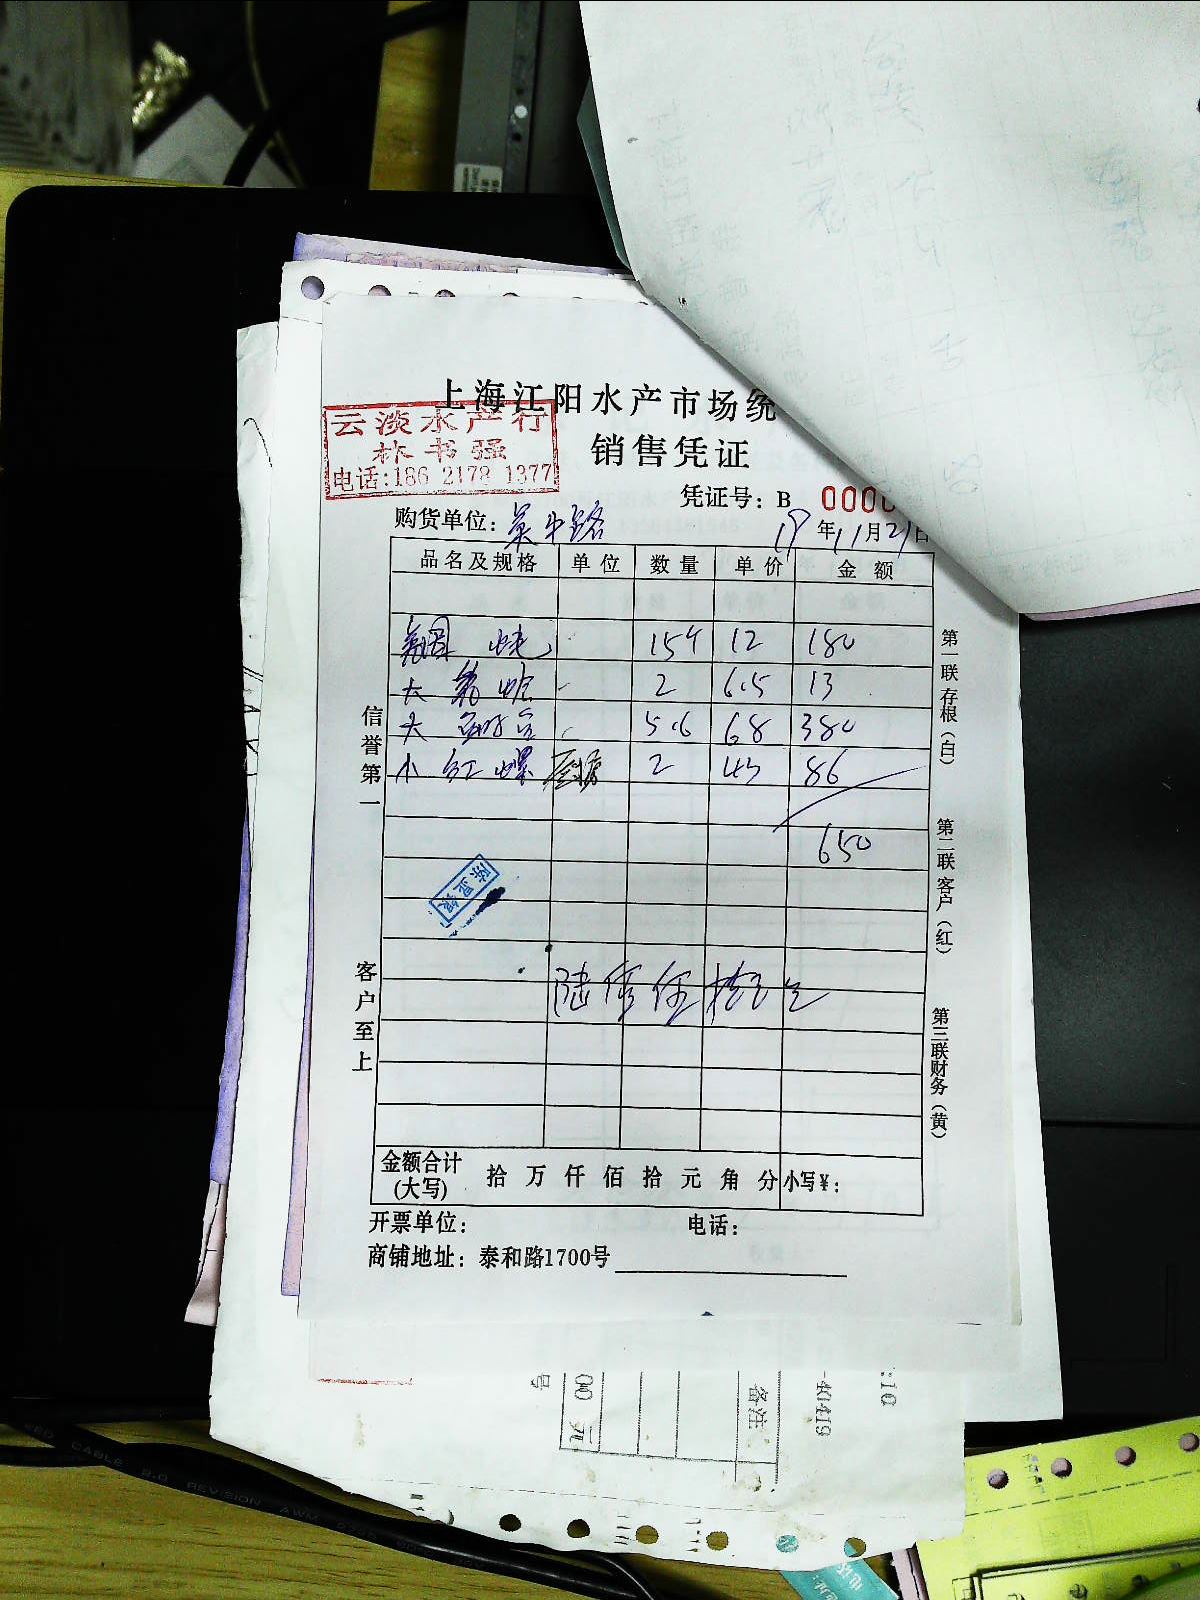 上海江阳水产市场统
销售凭证
云淡水产行
林书强
电话:186 2178 1377
凭证号：B 0000
购货单位：吴中路
19年11月21日
品名及规格 单位 数量 单价 金额
154 12 180
大 2 6.5 13
大 5.6 68 380
小红螺 2 43 86
650
陆佰伍拾元
金额合计(大写) 拾 万 仟 佰 拾 元 角 分 小写¥：
开票单位： 电话：
商铺地址：泰和路1700号
信誉第一
客户至上
第一联存根(白)
第二联客户(红)
第三联财务(黄)
备注
00 元
号
:10
-461419